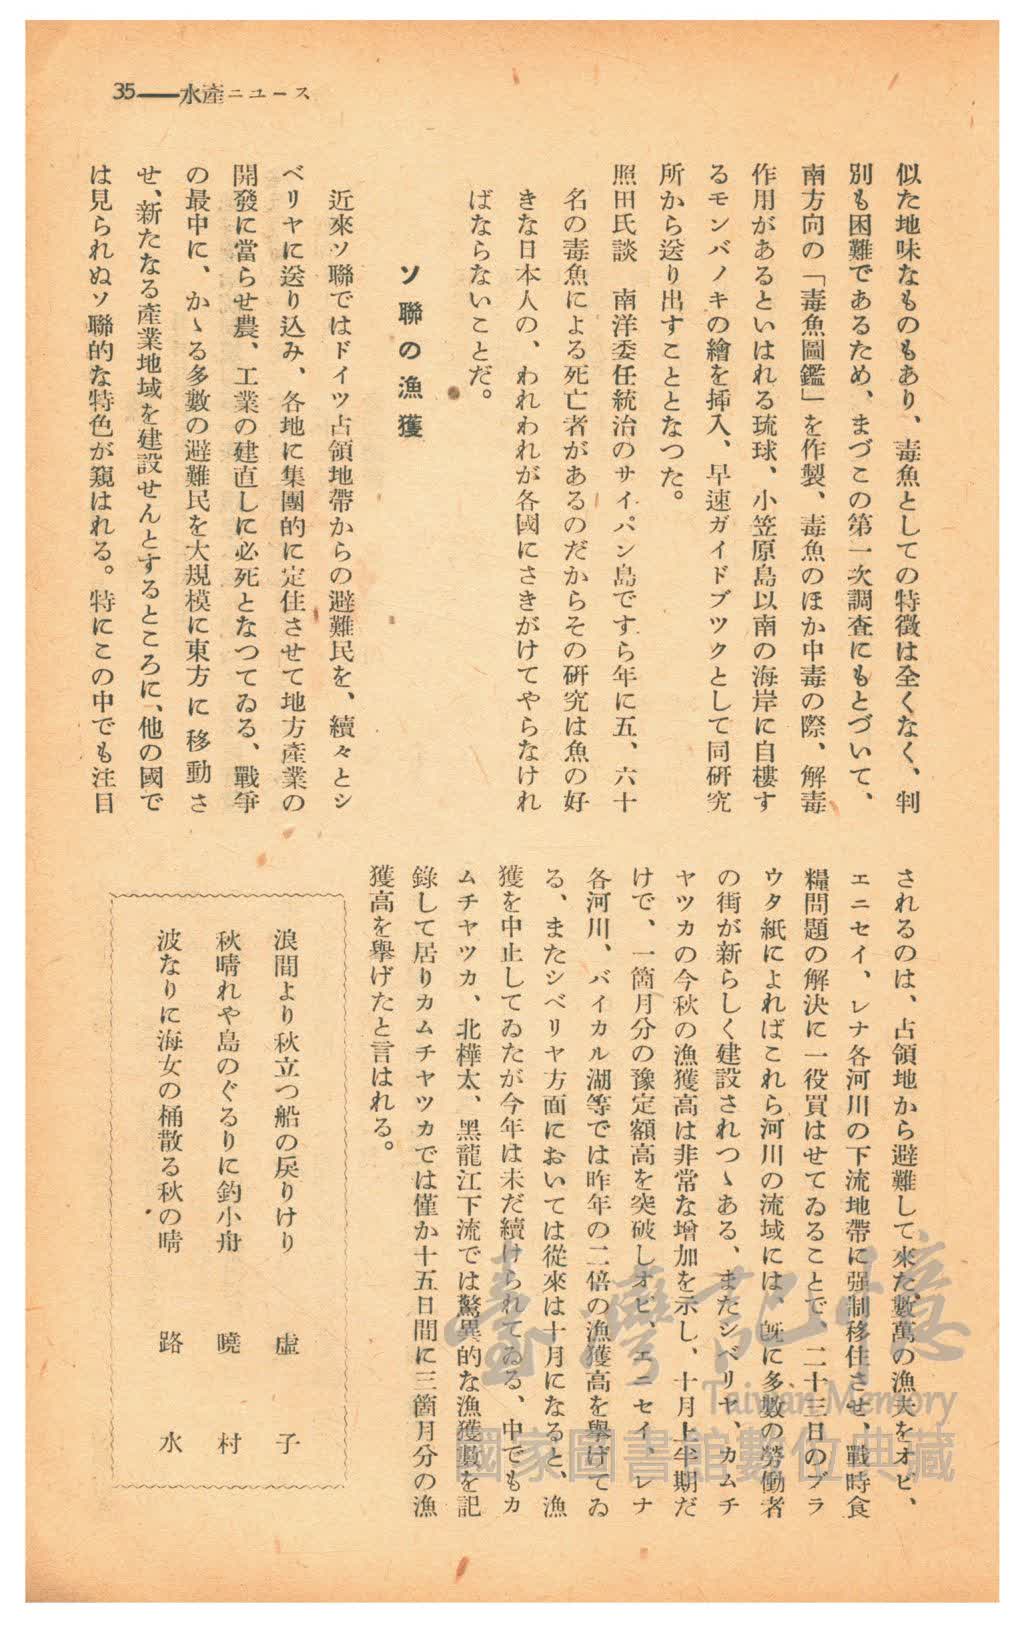 35――水產ニュース
似た地味なものもあり、毒魚としての特徴は全くなく、判
別も困難であるため、まづこの第一次調査にもとづいて、
南方向の「毒魚圖鑑」を作製、毒魚のほか中毒の際、解毒
作用があるといはれる琉球、小笠原島以南の海岸に自棲す
るモンバノキの繪を挿入、早速ガイドブツクとして同研究
所から送り出すこととなつた。
照田氏談　南洋委任統治のサイパン島ですら年に五、六十
名の毒魚による死亡者があるのだからその研究は魚の好
きな日本人の、われわれが各國にさきがけてやらなけれ
ばならないことだ。
ソ聯の漁獲
近來ソ聯ではドイツ占領地帶からの避難民を、續々とシ
ベリヤに送り込み、各地に集團的に定住させて地方產業の
開發に當らせ農、工業の建直しに必死となつてゐる、戰爭
の最中に、かゝる多數の避難民を大規模に東方に移動さ
せ、新たなる產業地域を建設せんとするところに、他の國で
は見られぬソ聯的な特色が窺はれる。特にこの中でも注目
されるのは、占領地から避難して來た數萬の漁夫をオビ、
エニセイ、レナ各河川の下流地帶に强制移住させ、戰時食
糧問題の解決に一役買はせてゐることで、二十三日のプラ
ウタ紙によればこれら河川の流域には、既に多數の勞働者
の街が新らしく建設されつゝある、またシベリヤ、カムチ
ヤツカの今秋の漁獲高は非常な增加を示し、十月上半期だ
けで、一箇月分の豫定額高を突破しオビ、エニセイ、レナ
各河川、バイカル湖等では昨年の二倍の漁獲高を擧げてゐ
る、またシベリヤ方面においては從來は十月になると、漁
獲を中止してゐたが今年は未だ續けられてゐる、中でもカ
ムチヤツカ、北樺太、黑龍江下流では驚異的な漁獲數を記
錄して居りカムチヤツカでは僅か十五日間に三箇月分の漁
獲高を擧げたと言はれる。
浪間より秋立つ船の戾りけり　虛子
秋晴れや島のぐるりに釣小舟　曉村
波なりに海女の桶散る秋の晴　路水
臺灣記憶
Taiwan Memory
國家圖書館數位典藏